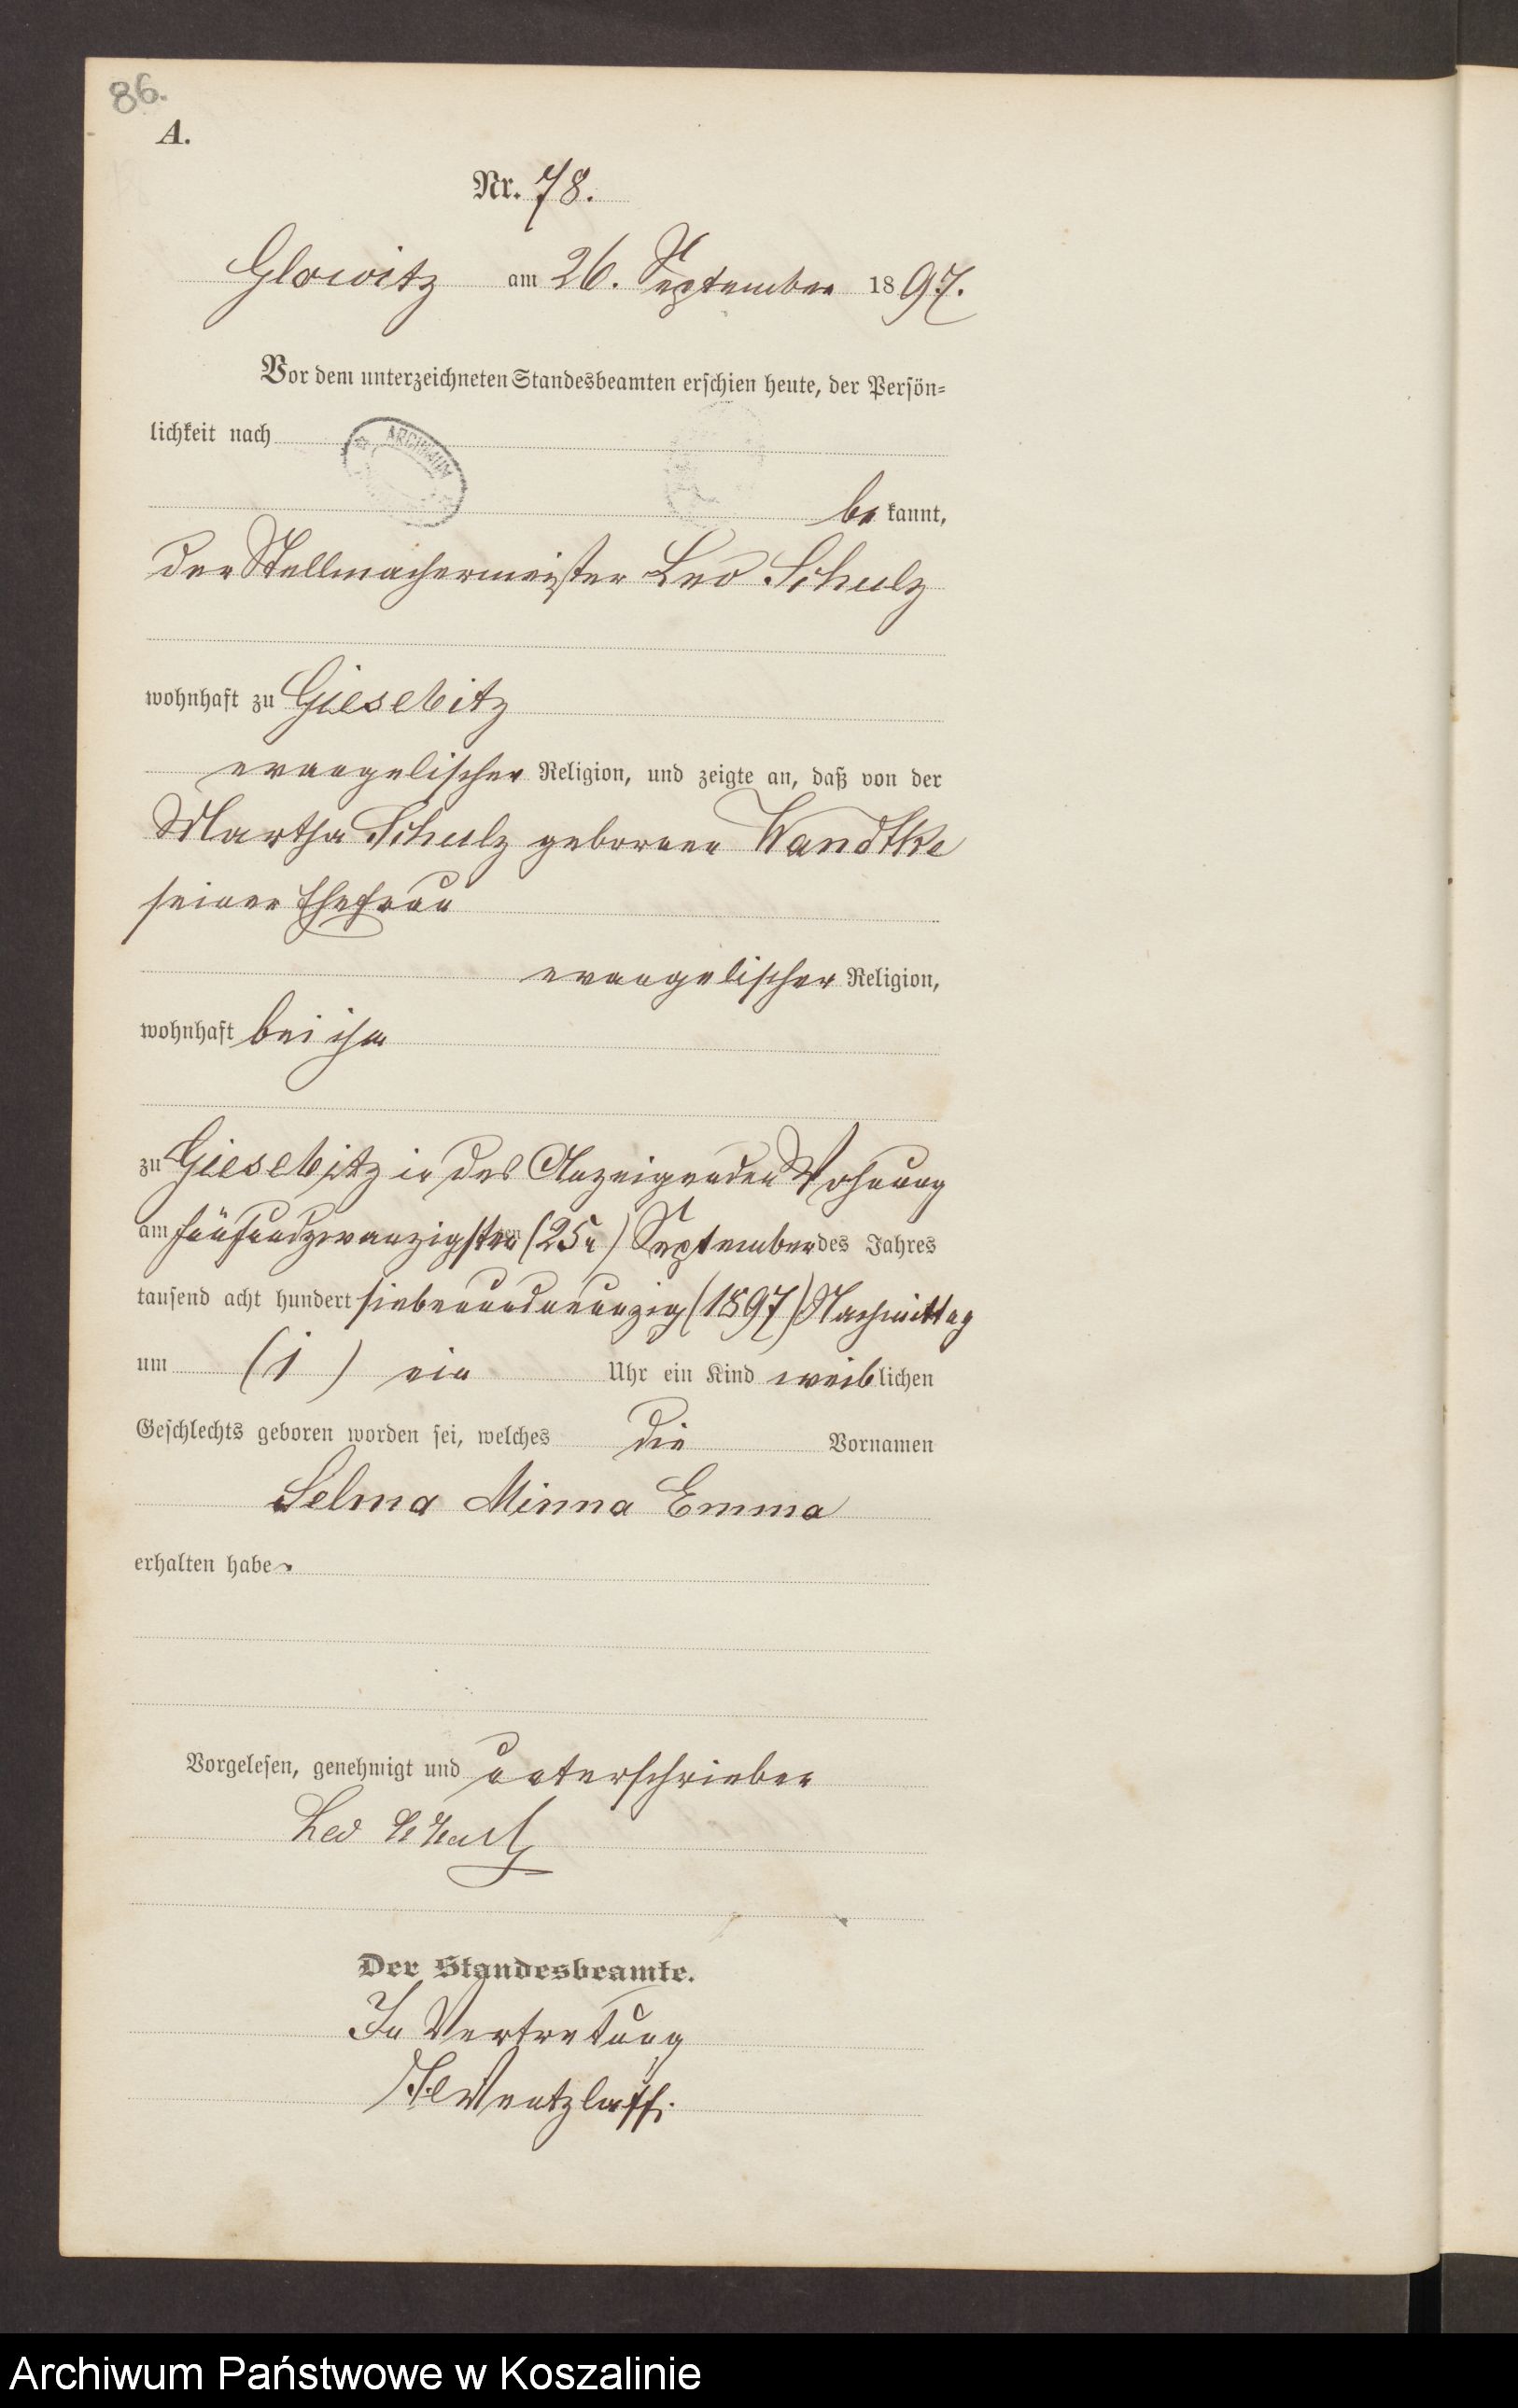 86.
A.
Nr. 78.
Glowitz am 26. September 1897.
Vor dem unterzeichneten Standesbeamten erschien heute, der Persön=
lichkeit nach
ARCHIWUM
bekannt,
der Stellmachermeister Leo Schulz
wohnhaft zu Giesebitz
evangelischer Religion, und zeigte an, daß von der
Martha Schulz geborenen Wandtke
seiner Ehefrau
evangelischer Religion,
wohnhaft bei ihm
zu Giesebitz in des Anzeigenden Wohnung
am fünfundzwanzigsten (25n) September des Jahres
tausend acht hundert siebenundneunzig (1897) Nachmittag
um (1) ein Uhr ein Kind weiblichen
Geschlechts geboren worden sei, welches die Vornamen
Selma Minna Emma
erhalten habe.
Vorgelesen, genehmigt und unterschrieben
Leo Schulz
Der Standesbeamte.
In Vertretung
Wentzlaff.
Archiwum Państwowe w Koszalinie